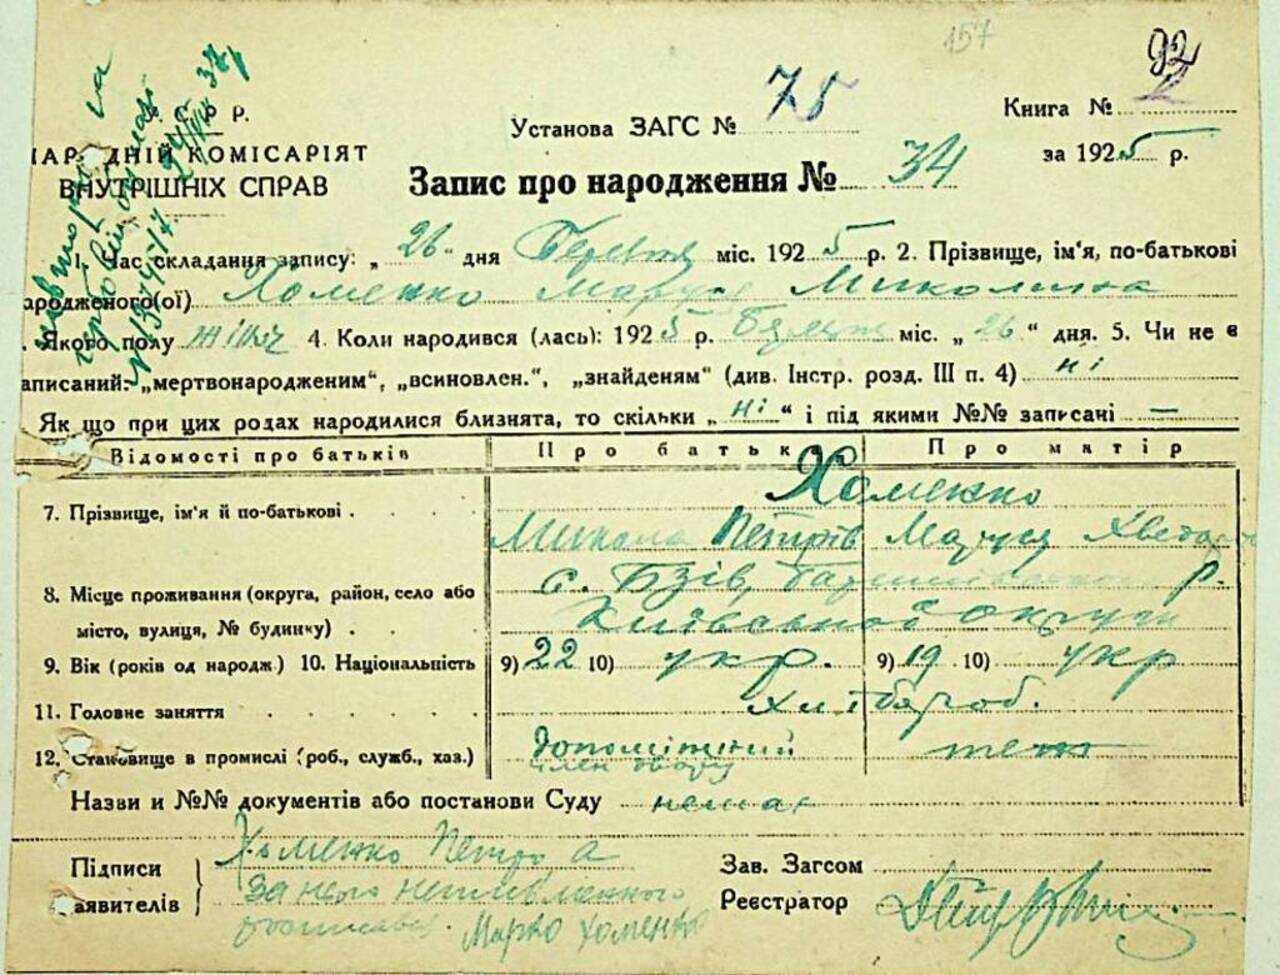 157
92
2
С. Р. Р.
Установа ЗАГС № 75
Книга №
НАРОДНІЙ КОМІСАРІЯТ
ВНУТРІШНІХ СПРАВ
Запис про народження № 34
за 1925 р.
1. Час складання запису: „ 26 " дня Березня міс. 1925 р. 2. Прізвище, ім'я, по-батькові
ародженого(ої) Хоменко Маруся Миколівна
. Якого полу жіноч 4. Коли народився (лась): 1925 р. Березня міс. „ 26 " дня. 5. Чи не є
аписаний: „мертвонародженим", „всиновлен.", „знайденям" (див. Інстр. розд. III п. 4) ні
Як що при цих родах народилися близнята, то скільки „ ні " і під якими №№ записані —
Відомості про батьків Про батьк Про матір
Хоменко
7. Прізвище, ім'я й по-батькові
Микола Петрів Маруся
8. Місце проживання (округа, район, село або с. Бзів, р.
місто, вулиця, № будинку) Київської округи
9. Вік (років од народж.) 10. Національність 9) 22 10) укр. 9) 19 10) укр
11. Головне заняття Хлібороб.
12. Становище в промислі (роб., служб., хаз.) допоміжний теж
член двору
Назви и №№ документів або постанови Суду немає
Підписи Хоменко Петро А
Зав. Загсом
аявителів За него неписьменного
Реєстратор
Марко Хоменко